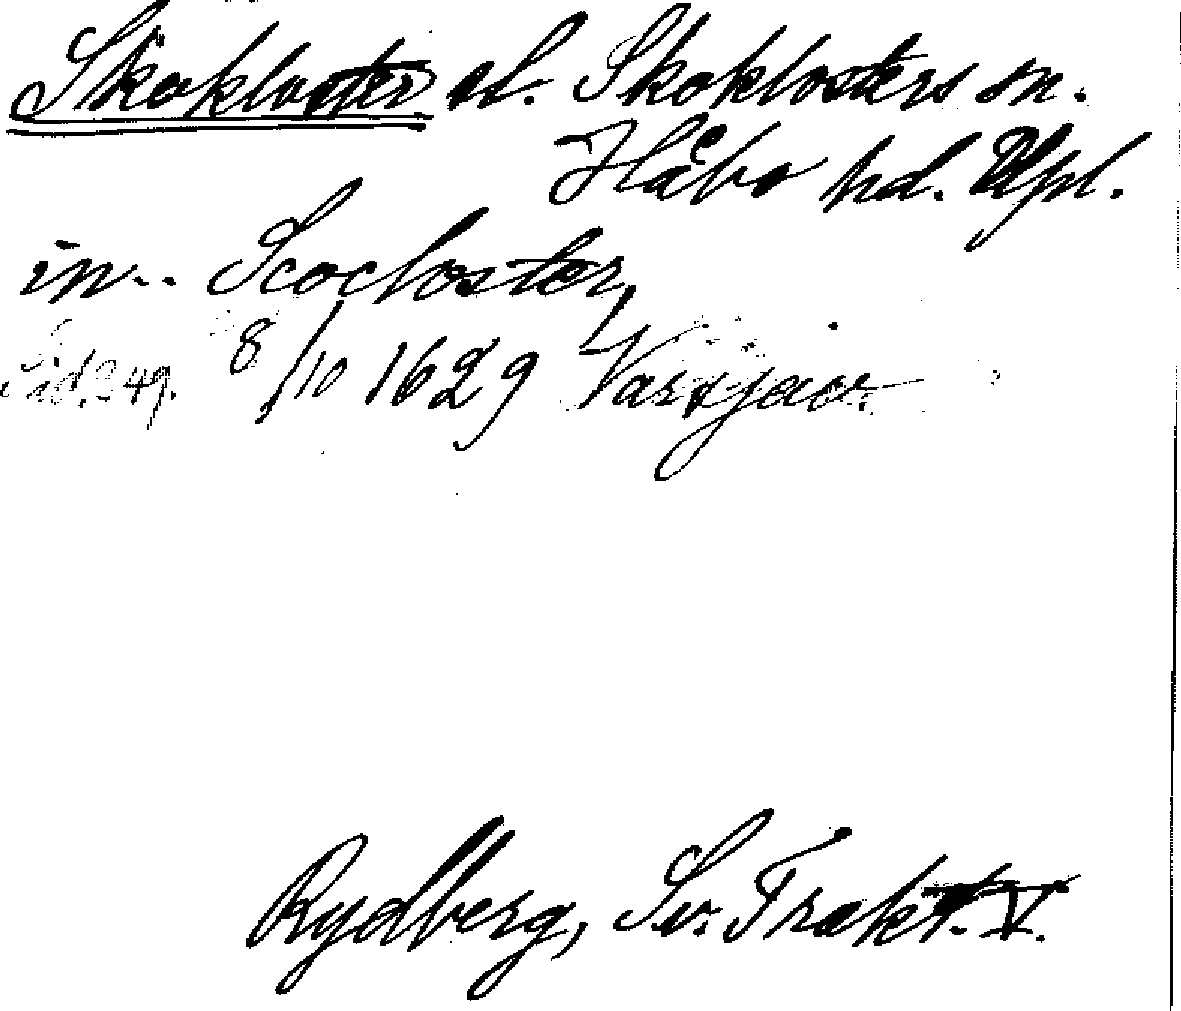 Skokloster sl. Skoklosters sn.
Håbo hd. Upl.
in.. Scocloster,
Sid. 349. 8/10 1629
Rydberg, Sv. Trakt. V.